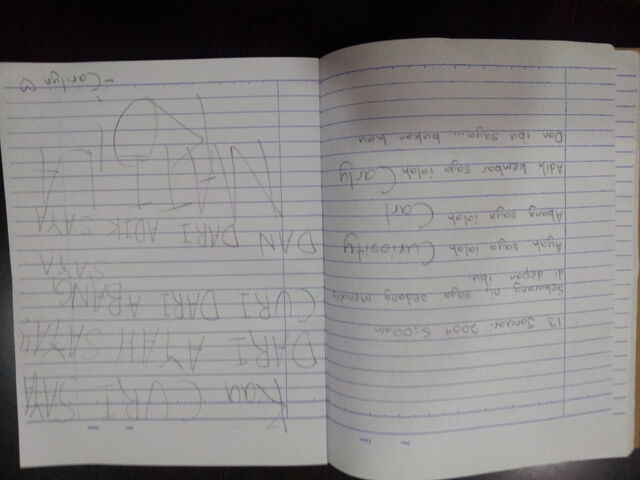 13 Januari 2009 5:00am
Sekarang ni, saya sedang menulis
di depan ibu.
Ayah saya ialah Curiosity
Abang saya ialah Carl
Adik kembar saya ialah Carly
Dan ibu saya... bukan kau
Kau CURI SAYA
DARI AYAH SAYA!!
CURI DARI ABANG
SAYA
DAN DARI ADIK SAYA
MATILA
- Carilyn ♡